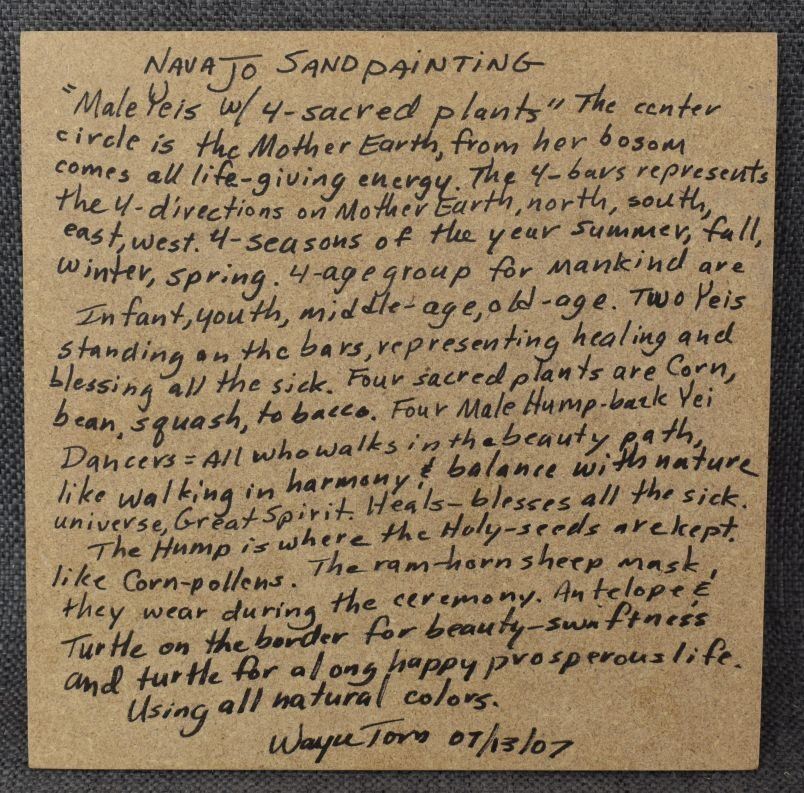 NAVAJO SANDPAINTING
"Male Yeis w/ 4-sacred plants" The center
circle is the Mother Earth, from her bosom
comes all life-giving energy. The 4-bars represents
the 4-directions on Mother Earth, north, south,
east, west. 4-seasons of the year summer, fall,
winter, spring. 4-age group for mankind are
Infant, youth, middle-age, old-age. Two Yeis
standing on the bars, representing healing and
blessing all the sick. Four sacred plants are Corn,
bean, squash, tobacco. Four Male Hump-back Yei
Dancers = All who walks in the beauty path,
like walking in harmony & balance with nature
universe, Great Spirit. Heals-blesses all the sick.
The Hump is where the Holy-seeds are kept.
like Corn-pollens. The ram-horn sheep mask,
they wear during the ceremony. Antelope &
Turtle on the border for beauty-swiftness
and turtle for a long happy prosperous life.
Using all natural colors.
07/13/07